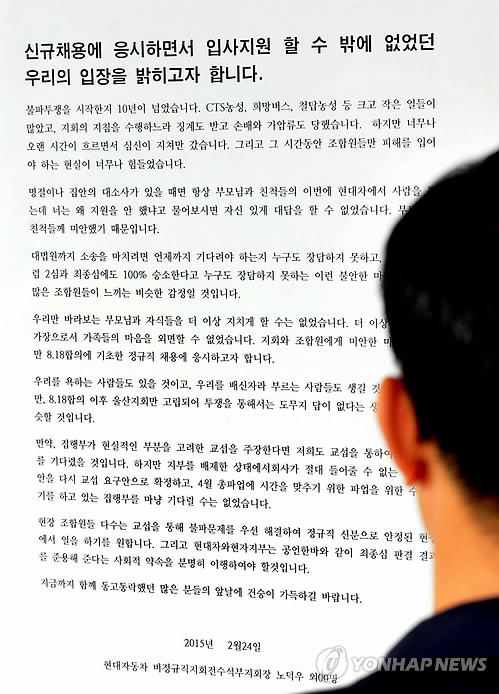 신규채용에 응시하면서 입사지원 할 수 밖에 없었던
우리의 입장을 밝히고자 합니다.
불파투쟁을 시작한지 10년이 넘었습니다. CTS농성, 희망버스, 철탑농성 등 크고 작은 일들이
많았고, 지회의 지침을 수행하느라 징계도 받고 손배와 가압류도 당했습니다. 하지만 너무나
오랜 시간이 흐르면서 심신이 지쳐만 갔습니다. 그리고 그 시간동안 조합원들만 피해를 입어
야 하는 현실이 너무나 힘들었습니다.
명절이나 집안의 대소사가 있을 때면 항상 부모님과 친척들의 이번에 현대차에서 사람을
는데 너는 왜 지원을 안 했냐고 물어보시면 자신 있게 대답을 할 수 없었습니다.
친척들께 미안했기 때문입니다.
대법원까지 소송을 마치려면 언제까지 기다려야 하는지 누구도 장담하지 못하고,
럼 2심과 최종심에도 100% 승소한다고 누구도 장담하지 못하는 이런 불안한
많은 조합원들이 느끼는 비슷한 감정일 것입니다.
우리만 바라보는 부모님과 자식들을 더 이상 지치게 할 수는 없었습니다. 더 이상
가장으로서 가족들의 마음을 외면할 수 없었습니다. 지회와 조합원에게 미안한
만 8.18합의에 기초한 정규직 채용에 응시하고자 합니다.
우리를 욕하는 사람들도 있을 것이고, 우리를 배신자라 부르는 사람들도 생길
만, 8.18합의 이후 울산지회만 고립되어 투쟁을 통해서는 도무지 답이 없다는
슷할 것입니다.
만약, 집행부가 현실적인 부분을 고려한 교섭을 주장한다면 저희도 교섭을 통하여
를 기다렸을 것입니다. 하지만 지부를 배제한 상태에서회사가 절대 들어줄 수 없는
안을 다시 교섭 요구안으로 확정하고, 4월 총파업에 시간을 맞추기 위한 파업을 위한 수
기를 하고 있는 집행부를 마냥 기다릴 수는 없었습니다.
현장 조합원들 다수는 교섭을 통해 불파문제를 우선 해결하여 정규직 신분으로 안정된
에서 일을 하기를 원합니다. 그리고 현대차와현자지부는 공언한바와 같이 최종심 판결 결과
를 준용해 준다는 사회적 약속을 분명히 이행하여야 할것입니다.
지금까지 함께 동고동락했던 많은 분들의 앞날에 건승이 가득하길 바랍니다.
2015년 2월24일
현대자동차 비정규직지회전수석부지회장 노덕우 외00명
YONHAP NEWS